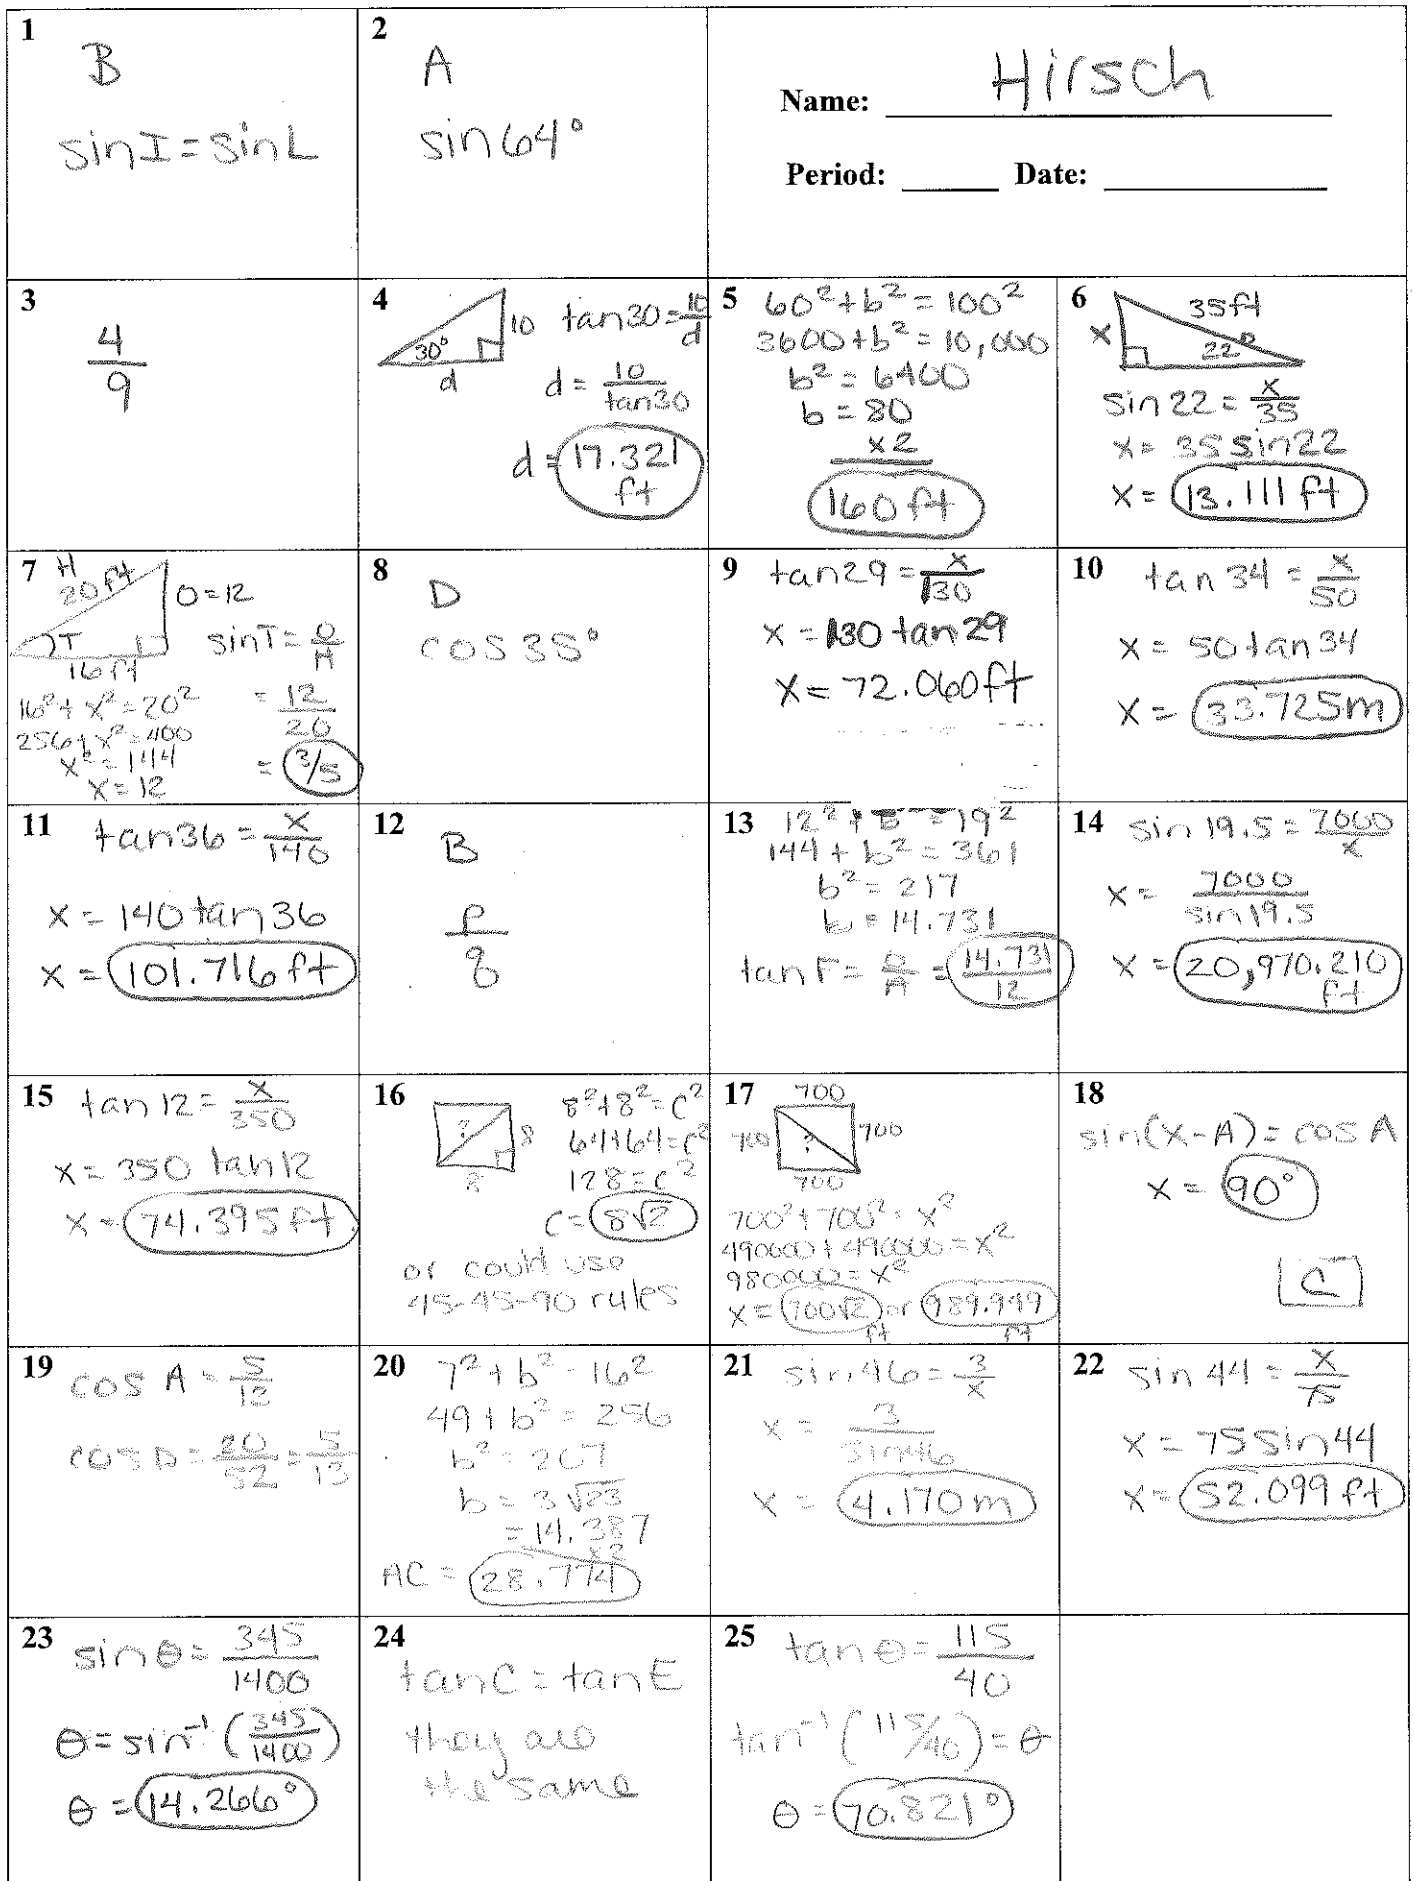 1
B
sin I = sin L
2
A
sin 64°
Name: Hirsch
Period: ______ Date: ______
3
4
9
4
30°
10
d
tan 30 = 10/d
d = 10/tan30
d = 17.321
ft
5
60² + b² = 100²
3600 + b² = 10,000
b² = 6400
b = 80
x2
160 ft
6
x
35ft
22°
sin 22 = x/35
x = 35 sin22
x = 13.111 ft
7
H
20ft
O = 12
T
16ft
sin T = O/H
16² + x² = 20²
256 + x² = 400
x² = 144
x = 12
= 12/20
= 3/5
8
D
cos 35°
9
tan 29 = x/130
x = 130 tan 29
x = 72.060ft
10
tan 34 = x/50
x = 50 tan 34
x = 33.725m
11
tan 36 = x/140
x = 140 tan 36
x = 101.716 ft
12
B
p
q
13
12² + b² = 19²
144 + b² = 361
b² = 217
b = 14.731
tan F = O/A = 14.731/12
14
sin 19.5 = 7000/x
x = 7000/sin 19.5
x = 20,970.210
ft
15
tan 12 = x/350
x = 350 tan 12
x = 74.395 ft
16
?
8
8
8² + 8² = c²
64 + 64 = c²
128 = c²
c = 8√2
or could use
45-45-90 rules
17
700
700
?
700
700
700² + 700² = x²
490000 + 490000 = x²
980000 = x²
x = 700√2 or 989.949
ft ft
18
sin(x-A) = cos A
x = 90°
C
19
cos A = 5/12
cos D = 20/52 = 5/13
20
7² + b² = 16²
49 + b² = 256
b² = 207
b = 3√23
= 14.387
x2
AC = 28.774
21
sin 46 = 3/x
x = 3/sin46
x = 4.170m
22
sin 44 = x/75
x = 75 sin 44
x = 52.099 ft
23
sin θ = 345/1400
θ = sin⁻¹ (345/1400)
θ = 14.266°
24
tan C = tan E
they are
the same
25
tan θ = 115/40
tan⁻¹ (115/40) = θ
θ = 70.821°